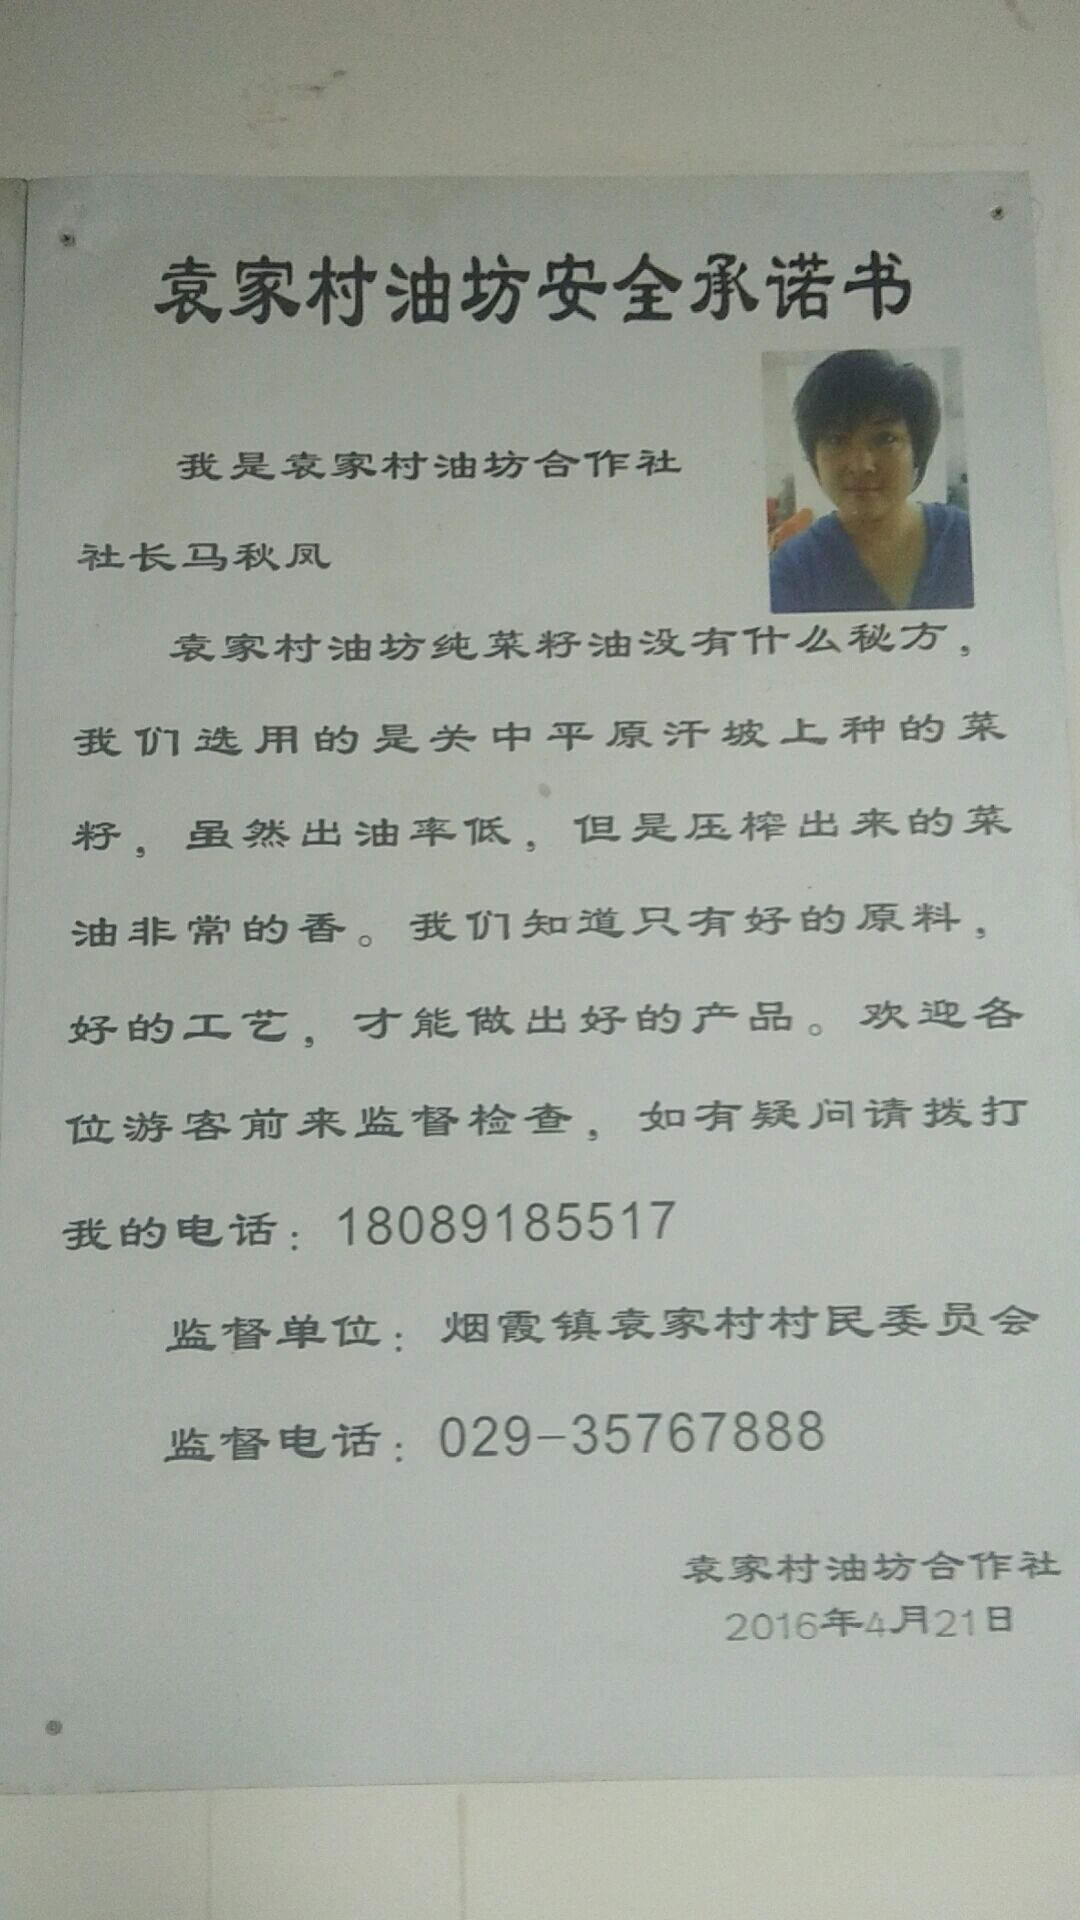 袁家村油坊安全承诺书
我是袁家村油坊合作社
社长马秋凤
袁家村油坊纯菜籽油没有什么秘方，
我们选用的是关中平原汗坡上种的菜
籽，虽然出油率低，但是压榨出来的菜
油非常的香。我们知道只有好的原料，
好的工艺，才能做出好的产品。欢迎各
位游客前来监督检查，如有疑问请拨打
我的电话：18089185517
监督单位：烟霞镇袁家村村民委员会
监督电话：029-35767888
袁家村油坊合作社
2016年4月21日